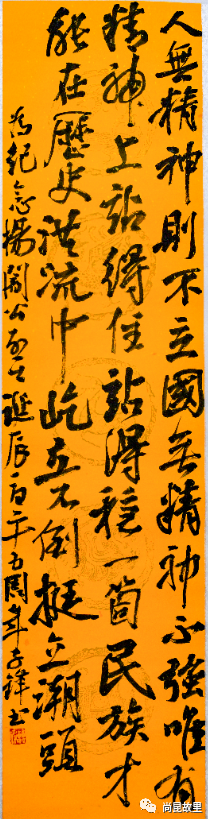 人無精神則不立國無精神不強唯有
精神上站得住站得穩一箇民族才
能在歷史洪流中屹立不倒挺立潮頭
為紀念楊闇公同志誕辰百二十五周年子鋒書
尚昆故里